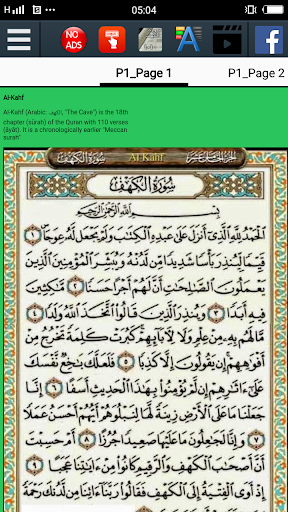 05:04
NO ADS
P1_Page 1
P1_Page 2
Al-Kahf
Al-Kahf (Arabic: الكهف, "The Cave") is the 18th
chapter (sūrah) of the Quran with 110 verses
(āyāt). It is a chronologically earlier "Meccan
surah"
سورة الكهف Al-Kahf الجزء الخامس عشر
سُورَةُ الكَهْفِ
بِسْمِ ٱللَّهِ ٱلرَّحْمَٰنِ ٱلرَّحِيمِ
ٱلْحَمْدُ لِلَّهِ ٱلَّذِىٓ أَنزَلَ عَلَىٰ عَبْدِهِ ٱلْكِتَٰبَ وَلَمْ يَجْعَل لَّهُۥ عِوَجَا ١
قَيِّمًا لِّيُنذِرَ بَأْسًا شَدِيدًا مِّن لَّدُنْهُ وَيُبَشِّرَ ٱلْمُؤْمِنِينَ ٱلَّذِينَ
يَعْمَلُونَ ٱلصَّٰلِحَٰتِ أَنَّ لَهُمْ أَجْرًا حَسَنًا ٢ مَّٰكِثِينَ
فِيهِ أَبَدًا ٣ وَيُنذِرَ ٱلَّذِينَ قَالُوا۟ ٱتَّخَذَ ٱللَّهُ وَلَدًا ٤
مَّا لَهُم بِهِۦ مِنْ عِلْمٍ وَلَا لِءَابَآئِهِمْ كَبُرَتْ كَلِمَةً تَخْرُجُ مِنْ
أَفْوَٰهِهِمْ إِن يَقُولُونَ إِلَّا كَذِبًا ٥ فَلَعَلَّكَ بَٰخِعٌ نَّفْسَكَ
عَلَىٰٓ ءَاثَٰرِهِمْ إِن لَّمْ يُؤْمِنُوا۟ بِهَٰذَا ٱلْحَدِيثِ أَسَفًا ٦ إِنَّا
جَعَلْنَا مَا عَلَى ٱلْأَرْضِ زِينَةً لَّهَا لِنَبْلُوَهُمْ أَيُّهُمْ أَحْسَنُ عَمَلًا
٧ وَإِنَّا لَجَٰعِلُونَ مَا عَلَيْهَا صَعِيدًا جُرُزًا ٨ أَمْ حَسِبْتَ
أَنَّ أَصْحَٰبَ ٱلْكَهْفِ وَٱلرَّقِيمِ كَانُوا۟ مِنْ ءَايَٰتِنَا عَجَبًا
٩ إِذْ أَوَى ٱلْفِتْيَةُ إِلَى ٱلْكَهْفِ فَقَالُوا۟ رَبَّنَآ ءَاتِنَا مِن لَّدُنكَ رَحْمَةً